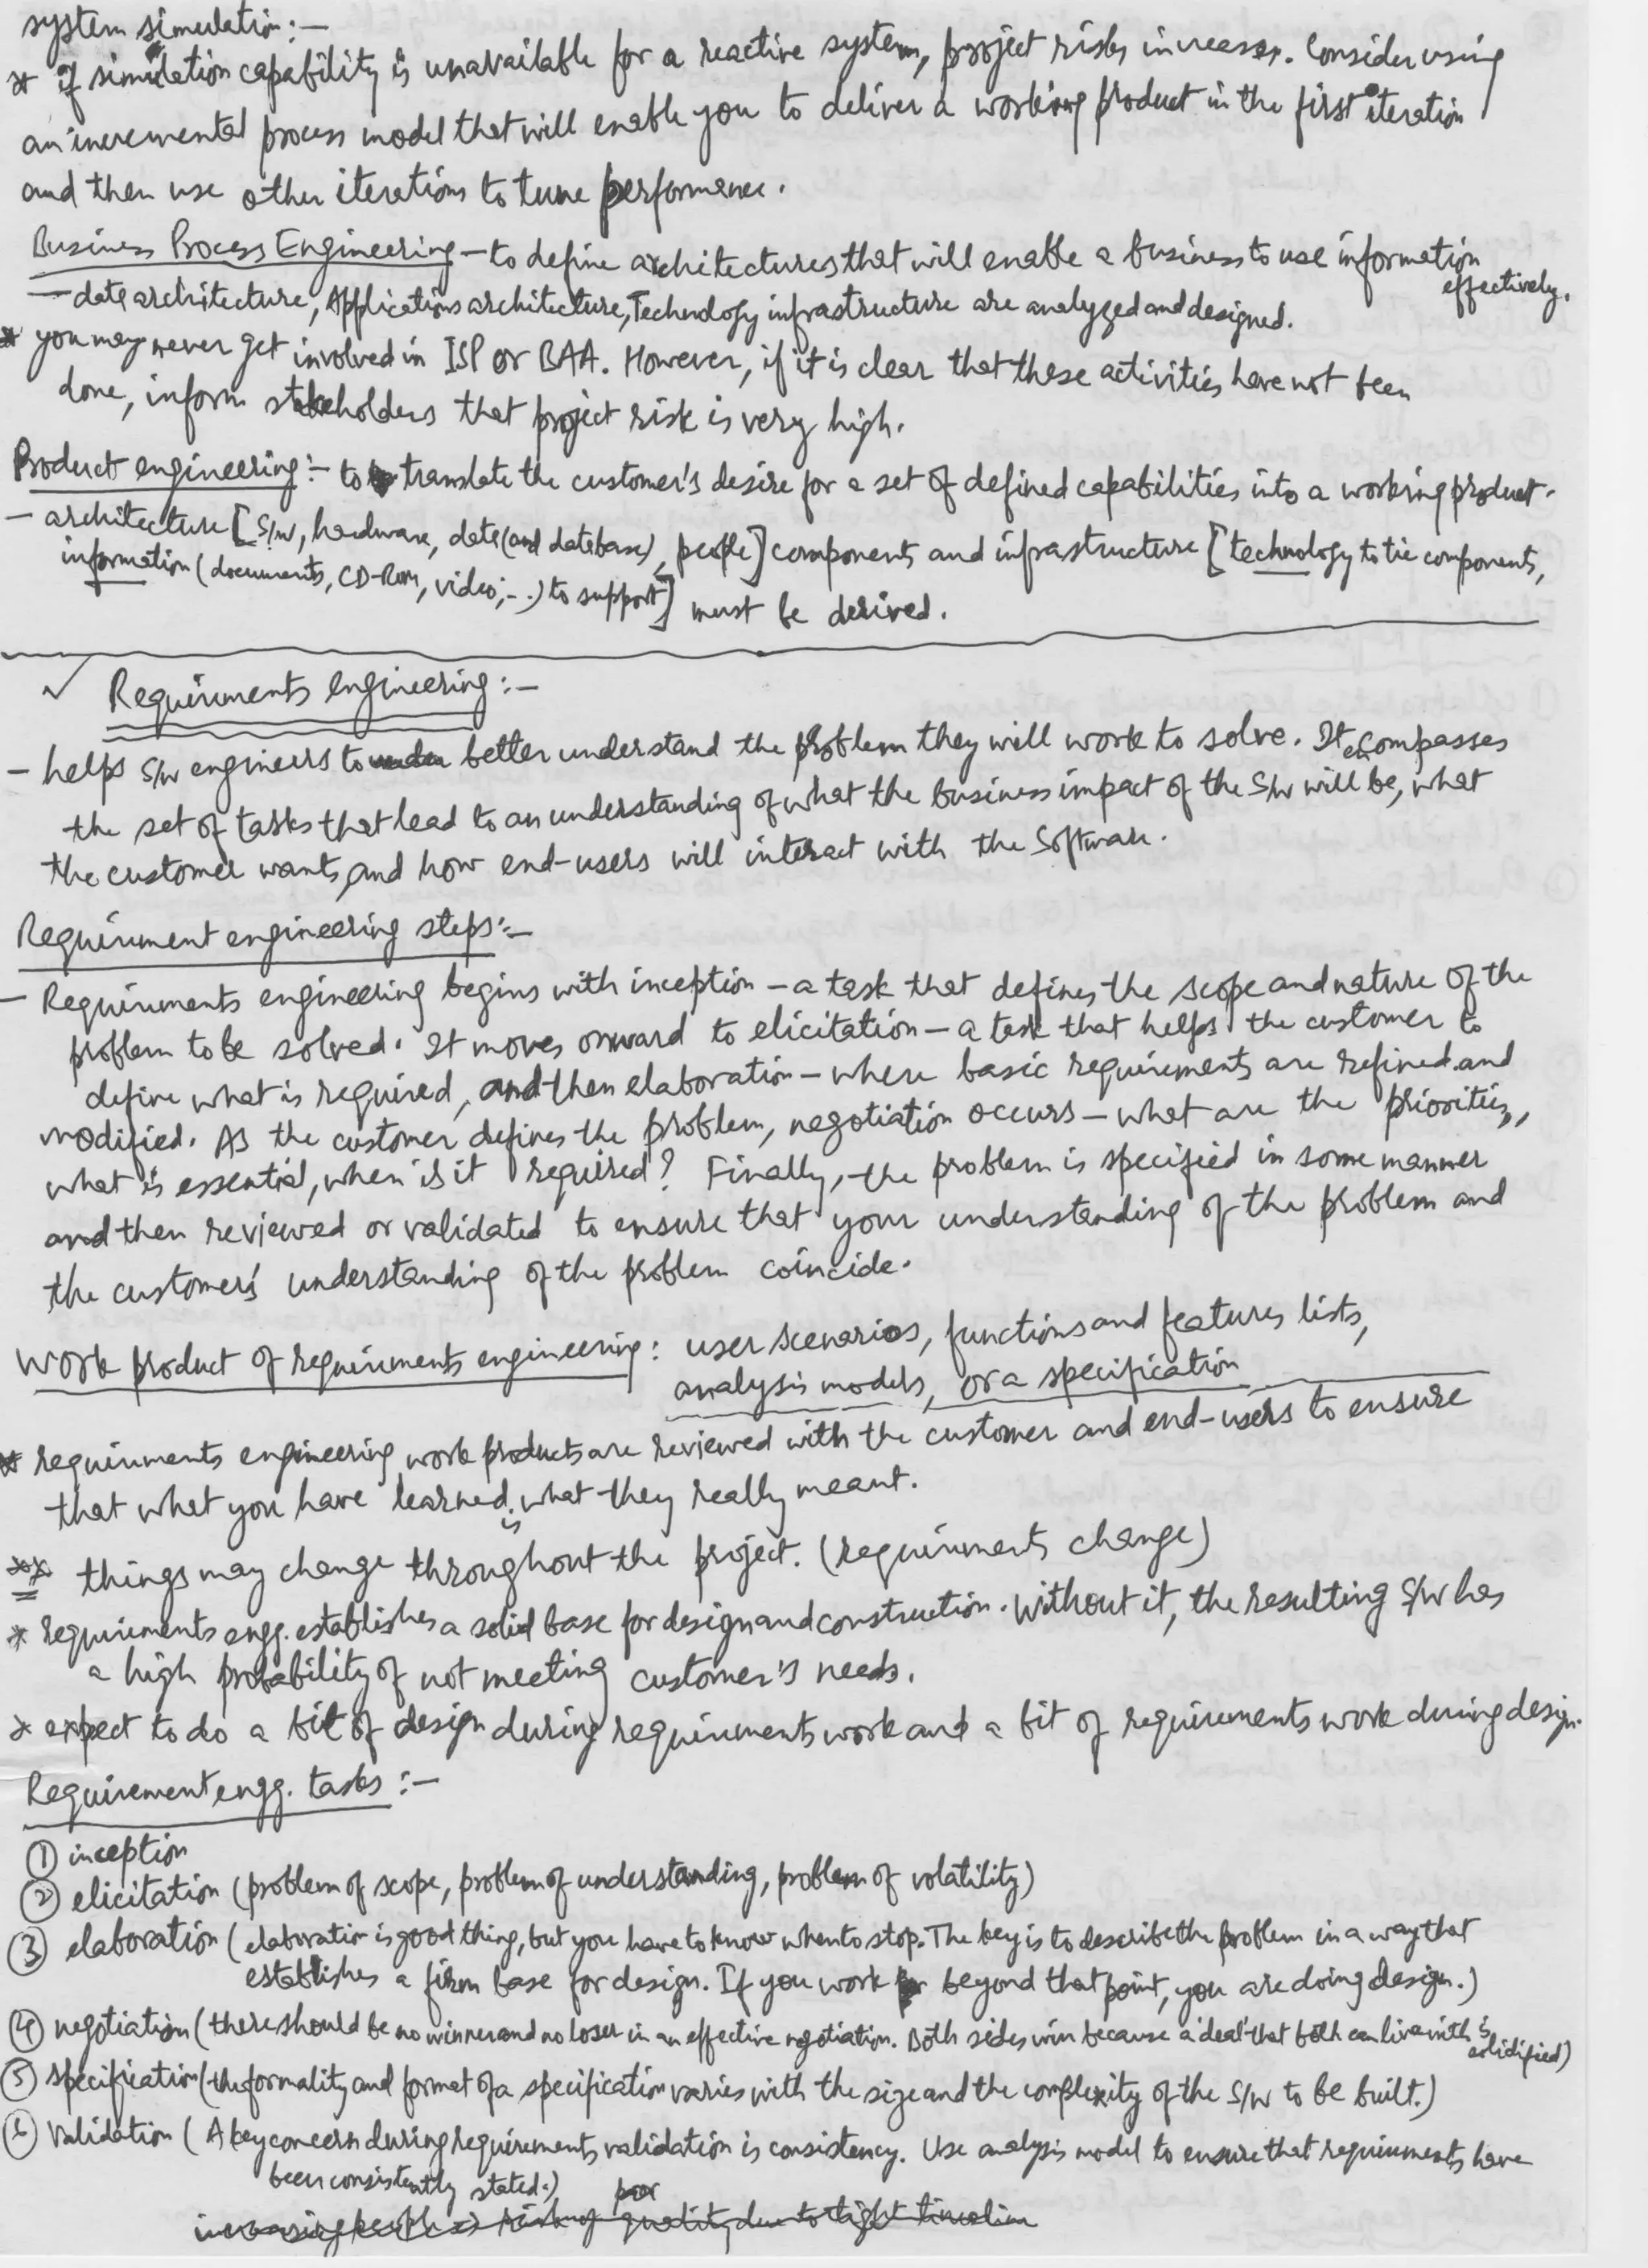 system simulation:-
* if simulation capability is unavailable for a reactive system, project risks increases. Consider using
an incremental process model that will enable you to deliver a working product in the first iteration
and then use other iterations to tune performance.
Business Process Engineering - to define architectures that will enable a business to use information
effectively.
- data architecture, Applications architecture, Technology infrastructure are analyzed and designed.
* you may never get involved in ISP or BAA. However, if it is clear that these activities have not been
done, inform stakeholders that project risk is very high.
Product engineering:- to translate the customer's desire for a set of defined capabilities into a working product.
- architecture [S/W, hardware, data (and database), people] components and infrastructure [technology to tie components,
information (documents, CD-Rom, video,...) to support] must be derived.
✓ Requirements engineering:-
- helps S/W engineers to better understand the problem they will work to solve. It encompasses
the set of tasks that lead to an understanding of what the business impact of the S/W will be, what
the customer wants, and how end-users will interact with the Software.
Requirement engineering steps:-
- Requirements engineering begins with inception - a task that defines the scope and nature of the
problem to be solved. It moves onward to elicitation - a task that helps the customer to
define what is required, and then elaboration - where basic requirements are refined and
modified. As the customer defines the problem, negotiation occurs - what are the priorities,
what is essential, when is it required? Finally, the problem is specified in some manner
and then reviewed or validated to ensure that your understanding of the problem and
the customer's understanding of the problem coincide.
Work product of requirements engineering: user scenarios, functions and features lists,
analysis models, or a specification
* requirements engineering work products are reviewed with the customer and end-users to ensure
that what you have learned is what they really meant.
** things may change throughout the project. (requirements change)
* requirements engg. establishes a solid base for design and construction. Without it, the resulting S/W has
a high probability of not meeting customer's needs.
* expect to do a bit of design during requirements work and a bit of requirements work during design.
Requirement engg. tasks:-
① inception
② elicitation (problem of scope, problem of understanding, problem of volatility)
③ elaboration (elaboration is good thing, but you have to know when to stop. The key is to describe the problem in a way that
establishes a firm base for design. If you work beyond that point, you are doing design.)
④ negotiation (there should be no winner and no loser in an effective negotiation. Both sides win because a 'deal' that both can live with is
solidified)
⑤ specification (the formality and format of a specification varies with the size and the complexity of the S/W to be built.)
⑥ Validation (A key concern during requirements validation is consistency. Use analysis model to ensure that requirements have
been consistently stated.)